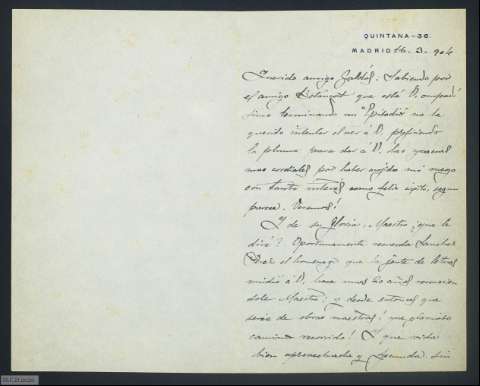 QUINTANA-36.
MADRID 16. 3. 904
Querido amigo Galdós: Sabiendo por
el amigo que está V.
terminando un "Episodio" no he
querido intentar el ver á V, prefiriendo
la pluma para dar á V. las gracias
mas cordiales por haber mi ruego
con tanto interés como feliz éxito, segun
parece. Veremos!
Y de su Gloria, Maestro ¿que le
diré? Oportunamente recuerda Sanchez
el homenaje que la gente de letras
á V. hace unos 20 años
Maestro: y desde entonces que
serie de obras maestras! que glorioso
camino recorrido! Y que vida
bien aprovechada y fecunda. Sin